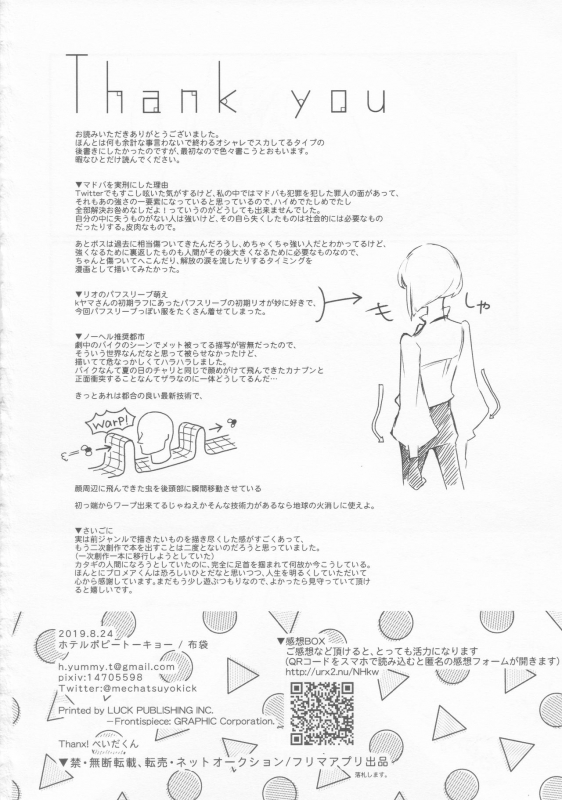 Thank you
お読みいただきありがとうございました。
ほんとは何も余計な事言わないで終わるオシャレでスカしてるタイプの
後書きにしたかったのですが、最初なので色々書こうとおもいます。
暇なひとだけ読んでください。
▼マドバを実刑にした理由
Twitterでもすこし呟いた気がするけど、私の中ではマドバも犯罪を犯した罪人の面があって、
それもあの強さの一要素になっていると思っているので、ハイめでたしめでたし
全部解決お咎めなしだよ！っていうのがどうしても出来ませんでした。
自分の中に失うものがない人は強いけど、その自ら失くしたものは社会的には必要なもの
だったりする。皮肉なもので。
あとボスは過去に相当傷ついてきたんだろうし、めちゃくちゃ強い人だとわかってるけど、
強くなるために裏返したものも人間がその後大きくなるために必要なものなので、
ちゃんと傷ついてへこんだり、解放の涙を流したりするタイミングを
漫画として描いてみたかった。
▼リオのパフスリーブ萌え
kヤマさんの初期ラフにあったパフスリーブの初期リオが妙に好きで、
今回パフスリーブっぽい服をたくさん着せてしまった。
も
しゃ
▼ノーヘル推奨都市
劇中のバイクのシーンでメット被ってる描写が皆無だったので、
そういう世界なんだなと思って被らせなかったけど、
描いてて危なっかしくてハラハラしました。
バイクなんて夏の日のチャリと同じで顔めがけて飛んできたカナブンと
正面衝突することなんてザラなのに一体どうしてるんだ…
きっとあれは都合の良い最新技術で、
warp!
顔周辺に飛んできた虫を後頭部に瞬間移動させている
初っ端からワープ出来てるじゃねえかそんな技術力があるなら地球の火消しに使えよ。
▼さいごに
実は前ジャンルで描きたいものを描き尽くした感がすごくあって、
もう二次創作で本を出すことは二度とないのだろうと思っていました。
(一次創作一本に移行しようとしていた)
カタギの人間になろうとしていたのに、完全に足首を掴まれて何故か今こうしている。
ほんとにプロメアくんは恐ろしいひとだなと思いつつ、人生を明るくしていただいて
心から感謝しています。まだもう少し遊ぶつもりなので、よかったら見守っていて頂け
ると嬉しいです。
2019.8.24
ホテルポピートーキョー / 布袋
h.yummy.t@gmail.com
pixiv:14705598
Twitter:@mechatsuyokick
Printed by LUCK PUBLISHING INC.
－Frontispiece: GRAPHIC Corporation.
Thanx! べいだくん
▼感想BOX
ご感想など頂けると、とっても活力になります
(QRコードをスマホで読み込むと匿名の感想フォームが開きます)
http://urx2.nu/NHkw
▼禁・無断転載、転売・ネットオークション/フリマアプリ出品
落札します。